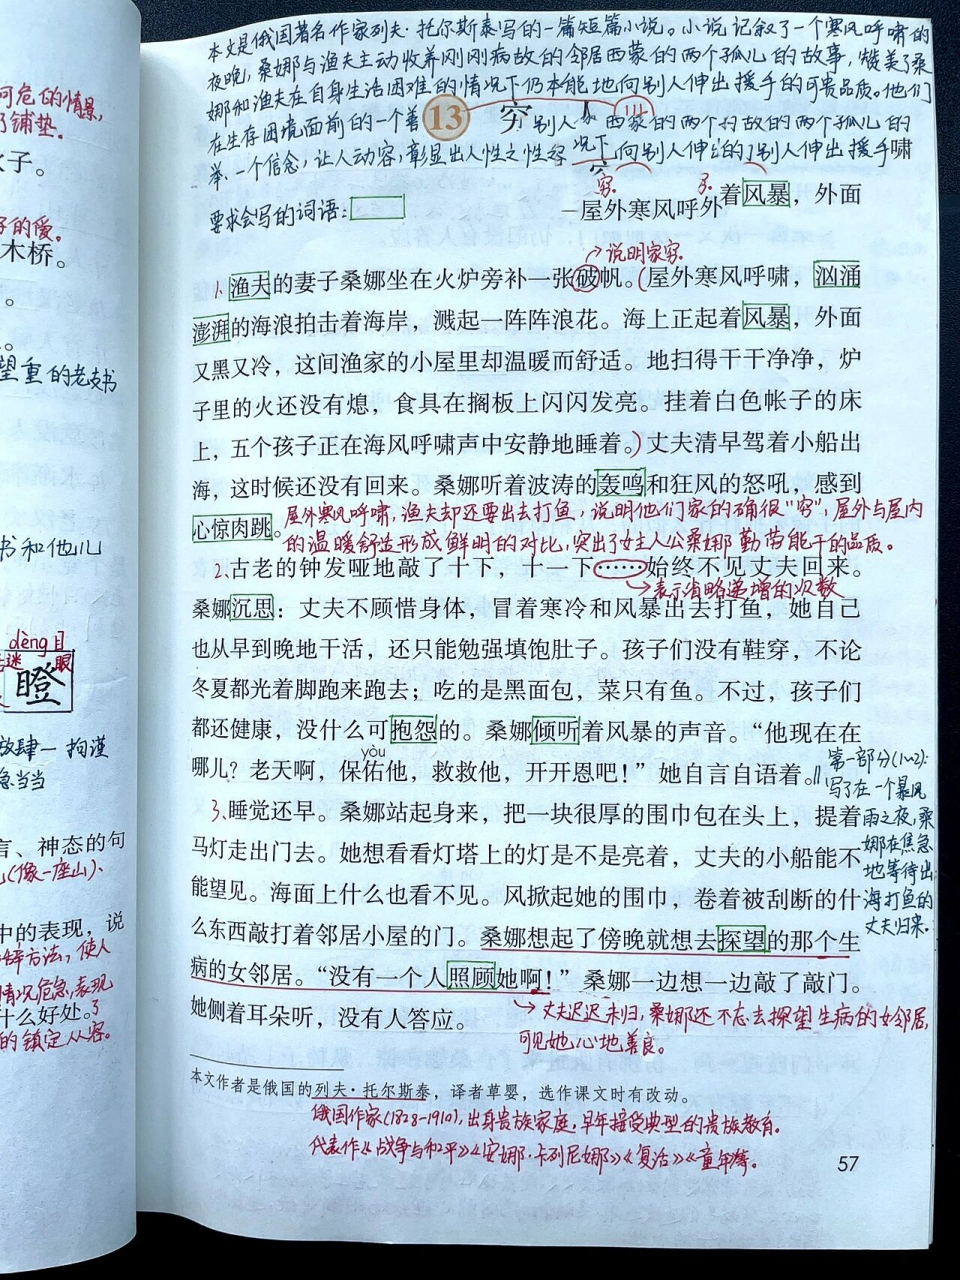 可危的情景,
铺垫。
子。
的爱。
木桥。
望重的老支书
书和他儿
dèng目
迷 眼
瞪
放肆一拘谨
当当
言、神态的句
(像一座山)、
中的表现，说
方法，使人
情况危急,表现
什么好处。
的镇定从容。
本文是俄国著名作家列夫·托尔斯泰写的一篇短篇小说。小说记叙了一个寒风呼啸的
夜晚，桑娜与渔夫主动收养刚刚病故的邻居西蒙的两个孤儿的故事，赞美了桑
娜和渔夫在自身生活困难的情况下仍本能地向别人伸出援手的可贵品质。他们
在生存困境面前的一个善
13 穷
别人 西蒙的两个 故的两个孤儿的
举、一个信念，让人动容，彰显出人性之 况下向别人伸 别人伸出援手啸
穷
要求会写的词语:
着风暴，外面
屋外寒风呼外
说明家穷
1.渔夫的妻子桑娜坐在火炉旁补一张破帆。(屋外寒风呼啸，汹涌
澎湃的海浪拍击着海岸，溅起一阵阵浪花。海上正起着风暴，外面
又黑又冷，这间渔家的小屋里却温暖而舒适。地扫得干干净净，炉
子里的火还没有熄，食具在搁板上闪闪发亮。挂着白色帐子的床
上，五个孩子正在海风呼啸声中安静地睡着。)丈夫清早驾着小船出
海，这时候还没有回来。桑娜听着波涛的轰鸣和狂风的怒吼，感到
心惊肉跳。
屋外寒风呼啸,渔夫却还要出去打鱼,说明他们家的确很“穷”,屋外与屋内
的温暖舒适形成鲜明的对比,突出了女主人公桑娜勤劳能干的品质。
2.古老的钟发哑地敲了十下，十一下……始终不见丈夫回来。
表示省略递增的次数
桑娜沉思：丈夫不顾惜身体，冒着寒冷和风暴出去打鱼，她自己
也从早到晚地干活，还只能勉强填饱肚子。孩子们没有鞋穿，不论
冬夏都光着脚跑来跑去；吃的是黑面包，菜只有鱼。不过，孩子们
都还健康，没什么可抱怨的。桑娜倾听着风暴的声音。“他现在在
yòu
哪儿？老天啊，保佑他，救救他，开开恩吧！”她自言自语着。‖
第一部分(1~2):
写了在一个暴风
雨之夜,桑
娜在焦急
地等待出
海打鱼的
丈夫归来.
3.睡觉还早。桑娜站起身来，把一块很厚的围巾包在头上，提着
马灯走出门去。她想看看灯塔上的灯是不是亮着，丈夫的小船能不
能望见。海面上什么也看不见。风掀起她的围巾，卷着被刮断的什
么东西敲打着邻居小屋的门。桑娜想起了傍晚就想去探望的那个生
病的女邻居。“没有一个人照顾她啊！”桑娜一边想一边敲了敲门。
她侧着耳朵听，没有人答应。
丈夫迟迟未归,桑娜还不忘去探望生病的女邻居,
可见她心地善良。
本文作者是俄国的列夫·托尔斯泰，译者草婴，选作课文时有改动。
俄国作家(1828-1910),出身贵族家庭,早年接受典型的贵族教育.
代表作《战争与和平》《安娜·卡列尼娜》《复活》《童年》等。
57